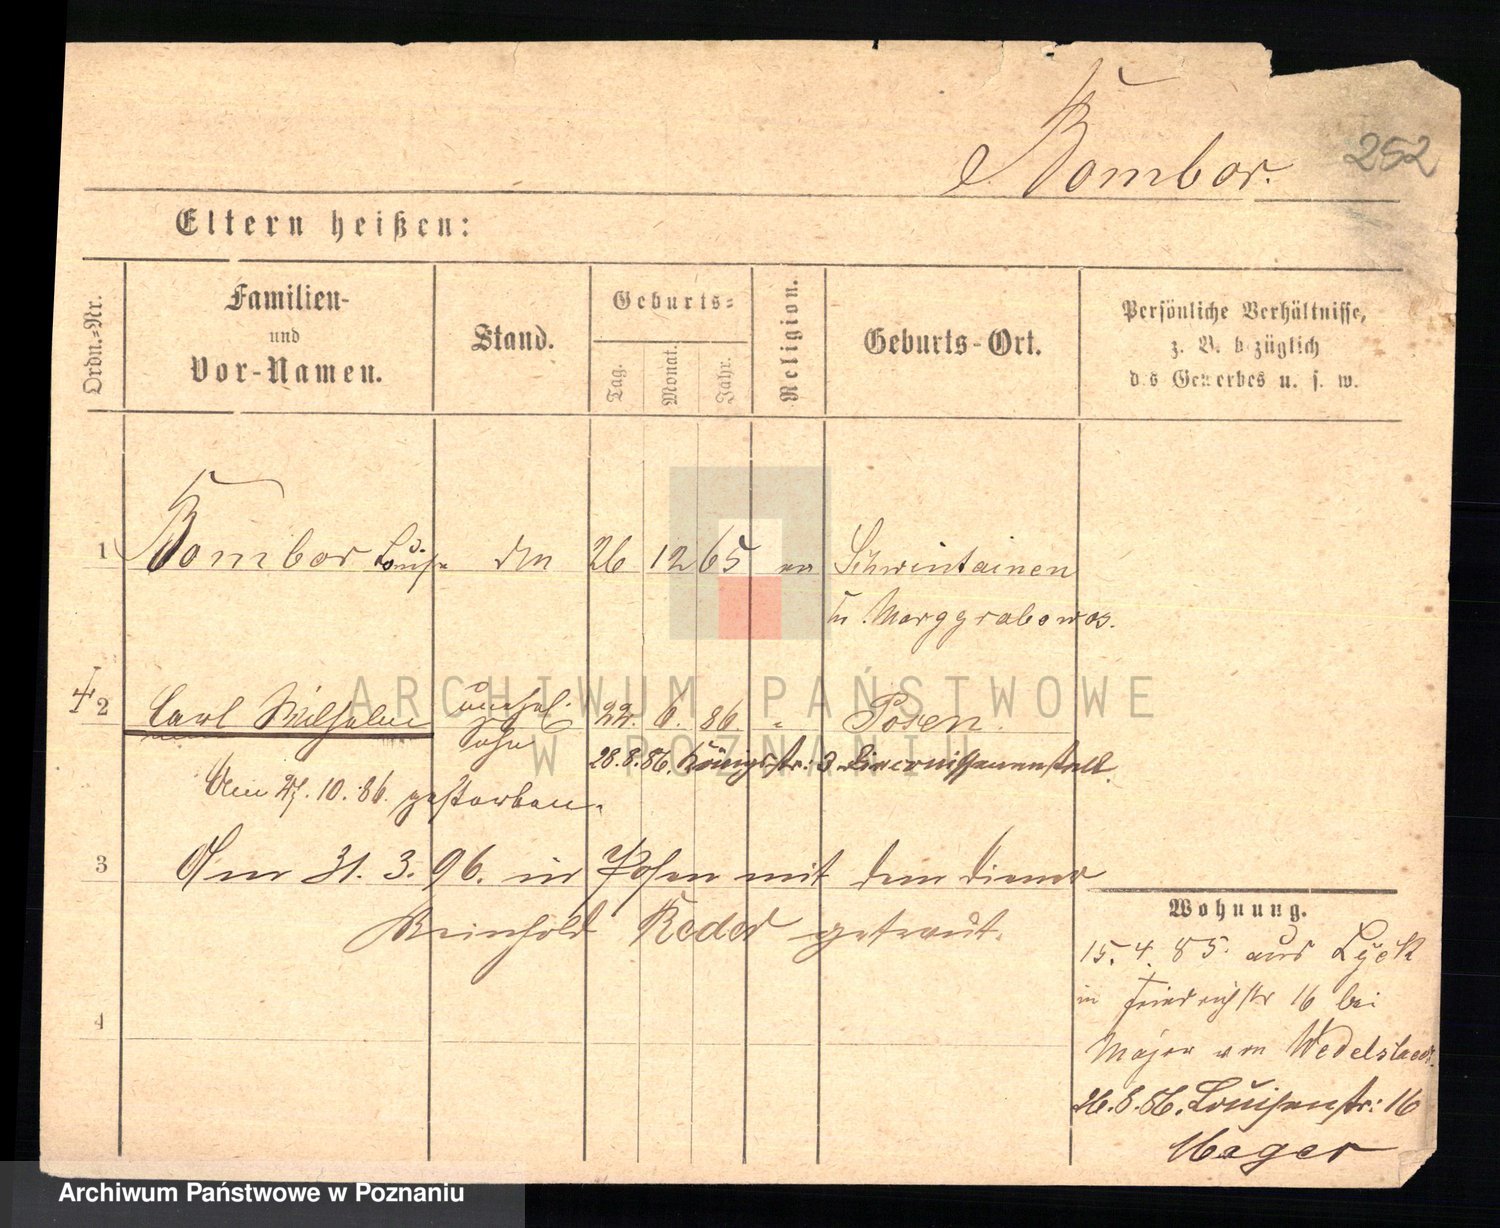 Bombor.
252
Eltern heißen:
Ordn.-Nr.
Familien-
und
Vor-Namen.
Stand.
Geburts-
Tag.
Monat.
Jahr.
Religion.
Geburts-Ort.
Persönliche Verhältnisse,
z. B. bezüglich
des Gewerbes u. s. w.
1 Bombor Louise 26 12 65 ev Schwintainen
Marggrabowa.
2 Carl Wilhelm unehel. 22. 6. 86 " Posen.
Sohn
28.8.86. Königsstr: 3 Diaconissenanstalt.
Am 27.10.86. gestorben.
3 Am 31. 3. 96. in Posen mit dem Diener
Reinhold Reder getraut.
4
Wohnung.
15. 4. 85. aus Lyck
in Friedrichstr 16 bei
Major von Wedelstaedt
26.8.86. Louisenstr: 16
Mager
ARCHIWUM PAŃSTWOWE
W POZNANIU
Archiwum Państwowe w Poznaniu